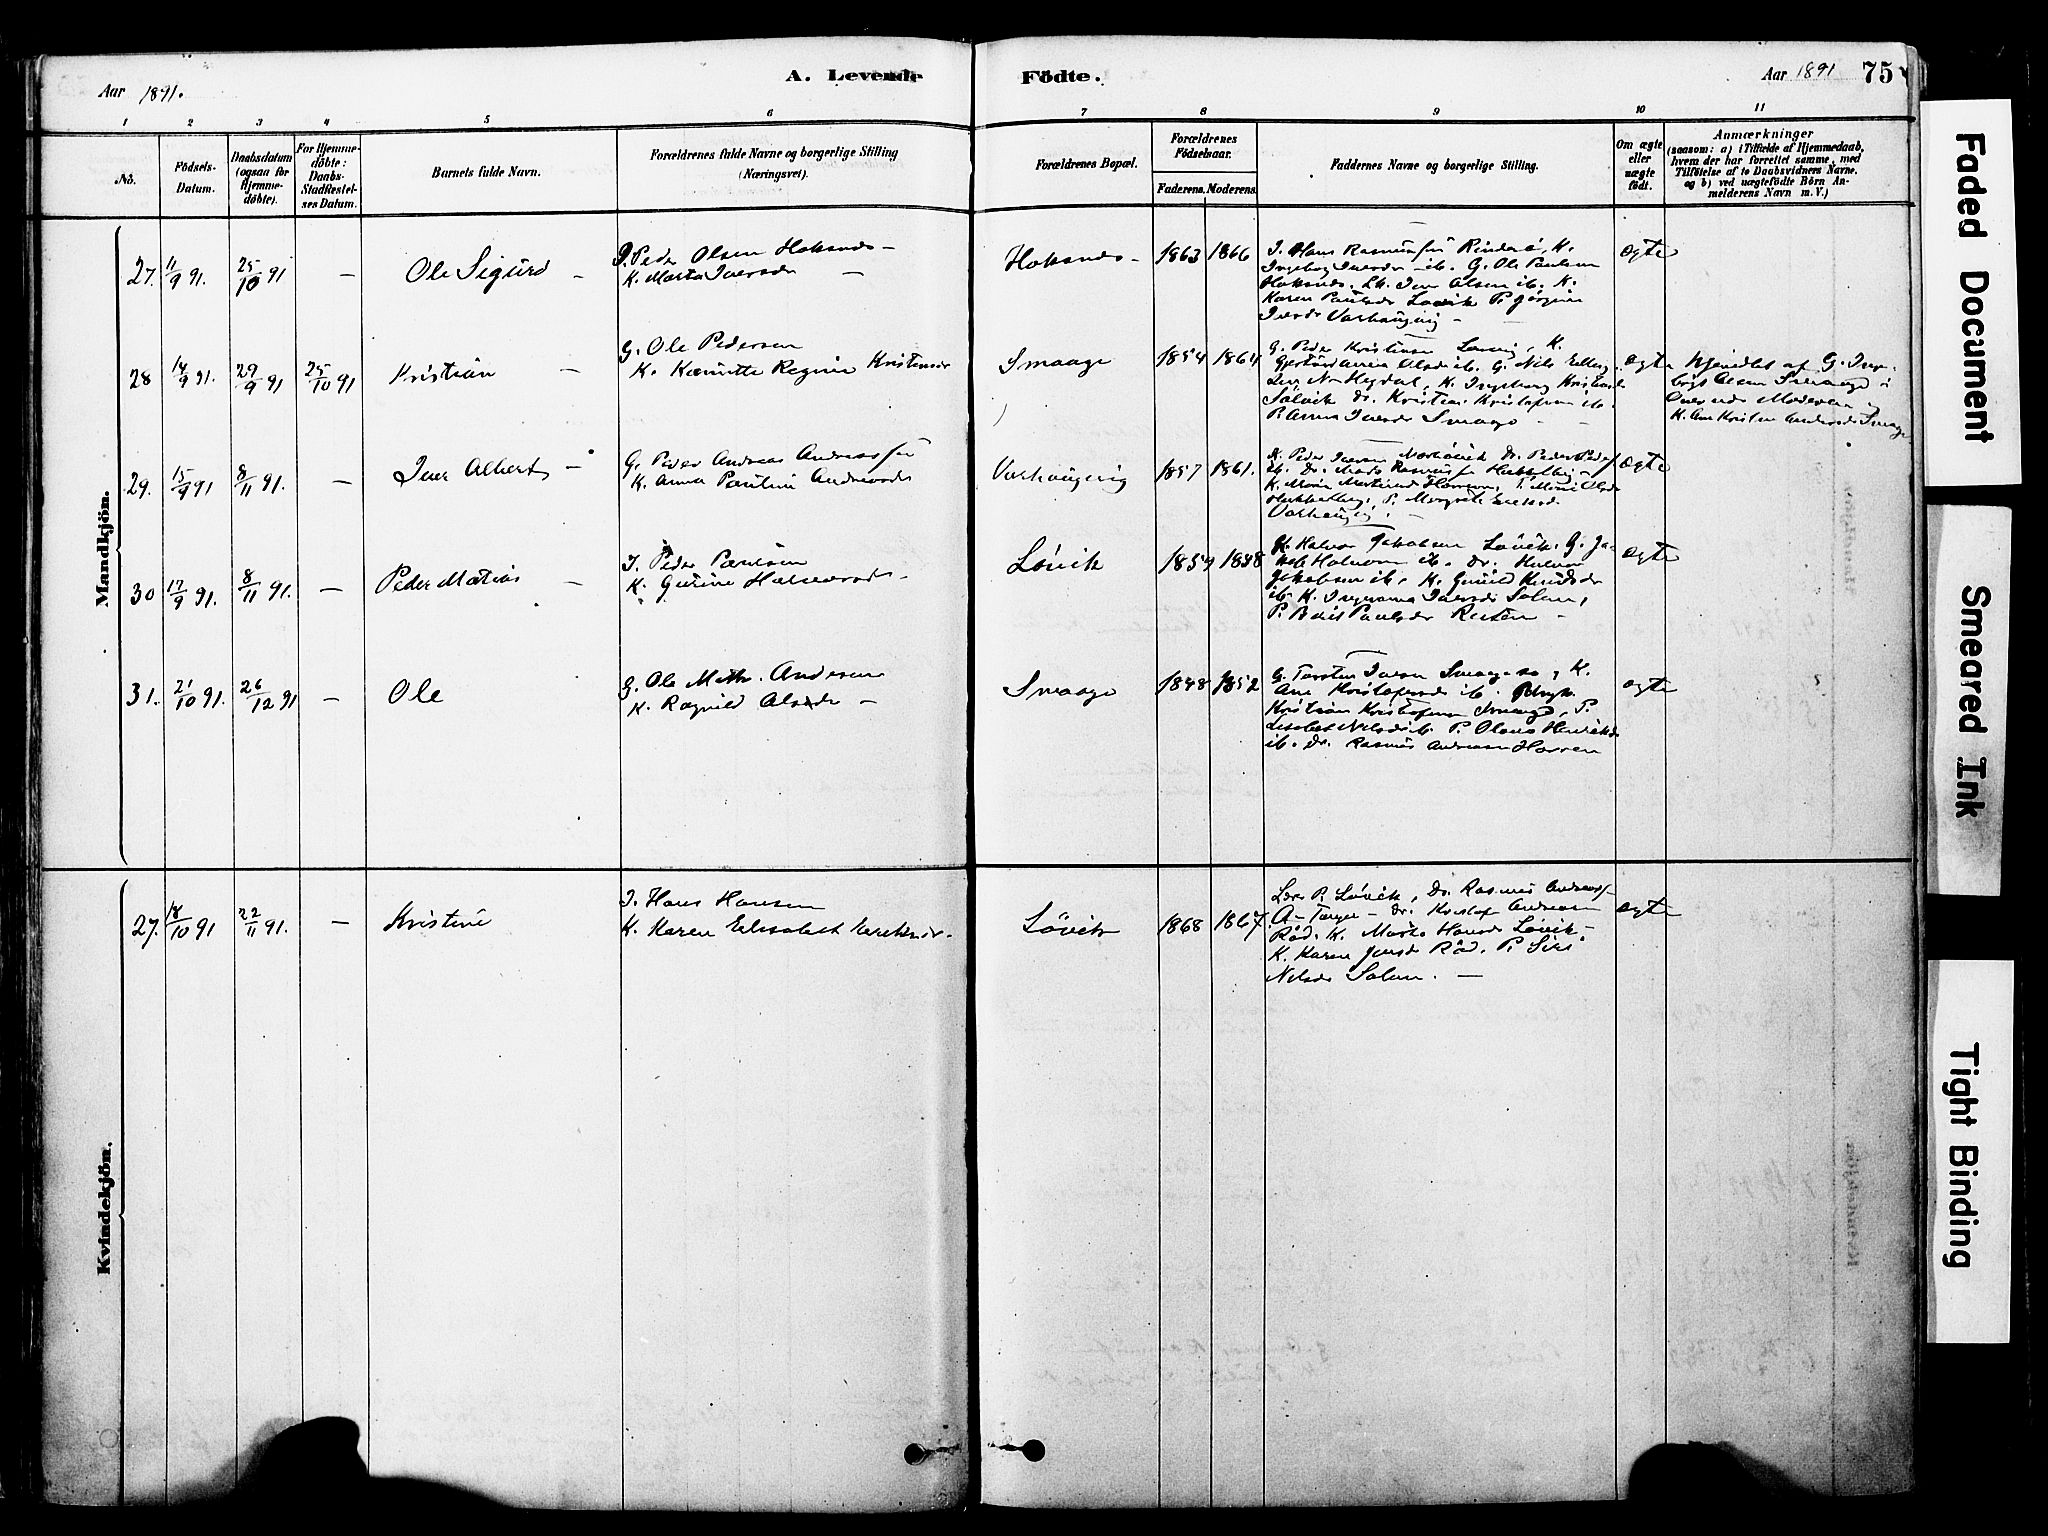 Aar 1891. A. Levende
1 2 3 4 5 6
No. Födsels-Datum. Daabsdatum (ogsaa for Hjemmedøbte). For Hjemmedöbte: Daabs-Stadfæstelses Datum. Barnets fulde Navn. Forældrenes fulde Navne og borgerlige Stilling (Næringsvei).
Mandkjön.
27. 11/9 91. 25/10 91 — Ole Sigurd — J. Peder Olsen Hoksnes —
K. Marta Iversdr —
28 14/9 91. 29/9 91 25/10 91 Kristian — G. Ole Pedersen
K. Regine Kristensdr
29. 15/9 91 8/11 91. — Iver Albert — G. Peder Andreas Andreassen
K. Anna Pauline Andreasdr
30 17/9 91. 8/11 91. — Peder Matias — J. Peder Paulsen
K. Gurine Halvorsdr.
31. 21/10 91. 26/12 91 — Ole G. Ole Math. Andersen
K. Ragnild Olsdr —
Kvindekjön.
27. 18/10 91 22/11 91. — Kristine J. Hans Hansen
K. Karen Elisabet
Födte. Aar 1891 75
7 8 9 10 11
Forældrenes Bopæl. Forældrenes Födselsaar. Faderens. Moderens. Faddernes Navne og borgerlige Stilling. Om ægte eller uægte födt. Anmærkninger
(saasom: a) i Tilfælde af Hjemmedaab,
hvem der har forrettet samme, med
Tilföielse af to Daabsvidners Navne,
og b) ved uægtefödte Börn An-
melderens Navn m. V.)
Hoksnes — 1863 1866 J. Hans Rasmussen Rinderö, K. ægte
Ingeborg Iversdr ib. G. Ole Paulsen
Hoksnes. Iver Olsen ib. K.
Karen Paulsdr Løvik P. Jørgine
Iversdr Varhaugvig —
Smaage 1854 1864 G. Peder Kristensen K. ægte Hjemdøbt af G. Inge-
Anna Olsdr ib. G. Nils brigt Olsen Smaage i
Hegdal, K. Ingeborg Kristensdr Overvær Moderen
Solvik Dr. Kristian Kristofersen ib. K. Ane Kristine Andersdr Smaage
P. Anna Iversdr Smaage —
Varhaugvig 1857 1861. K. Peder Iversen Dr. Peder ægte
ib. Dr. Mads Rasmussen
K. Marie P. Marie Olsdr
P. Margrete
Varhaugvig. —
Løvik 1854 1858 K. Halvor Jakobsen Løvik. G. Ja- ægte
kob Halvorsen ib. Dr. Halvor
Jakobsen ib. K. Gunild Knudsdr
ib. K. Ingeranna Iversdr Solem,
P. Berit Paulsdr Resten —
Smaage 1848 1852 G. Torsten Iversen Smaage, K. ægte
Ane Kristofersdr ib.
Kristian Kristofersen Smaage, P.
Lisabet Nilsdr ib. P. Olava Henriksdr
ib. Dr. Rasmus Andersen Harren
Løvik 1868 1867. P. Løvik, Dr. Rasmus Andreas ægte
Dr. Kristofer Andersen
Röd. K. Marta Hansdr Løvik —
K. Karen Jensdr Röd. P. Siri
Nilsdr Solem. —
Faded Document
Smeared Ink
Tight Binding